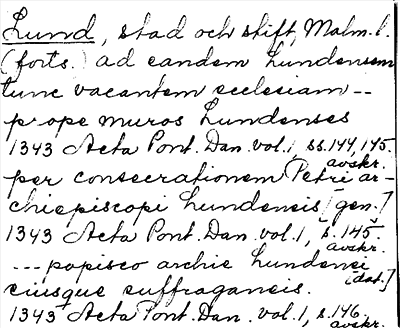 Lund, stad och stift, Malm. l.
(forts.) ad eandem Lundensem
tunc vacantem ecclesiam --
prope muros Lundenses
1343 Acta Pont. Dan. vol. 1, ss. 144, 145.
avskr.
per consecrationem Petri ar-
chiepiscopi Lundensis [gen.]
1343 Acta Pont. Dan. vol. 1, s. 145.
avskr.
--- popisco archie Lundensi
[dat.]
eiusque suffraganeis.
1343 Acta Pont. Dan. vol. 1, s. 146.
avskr.